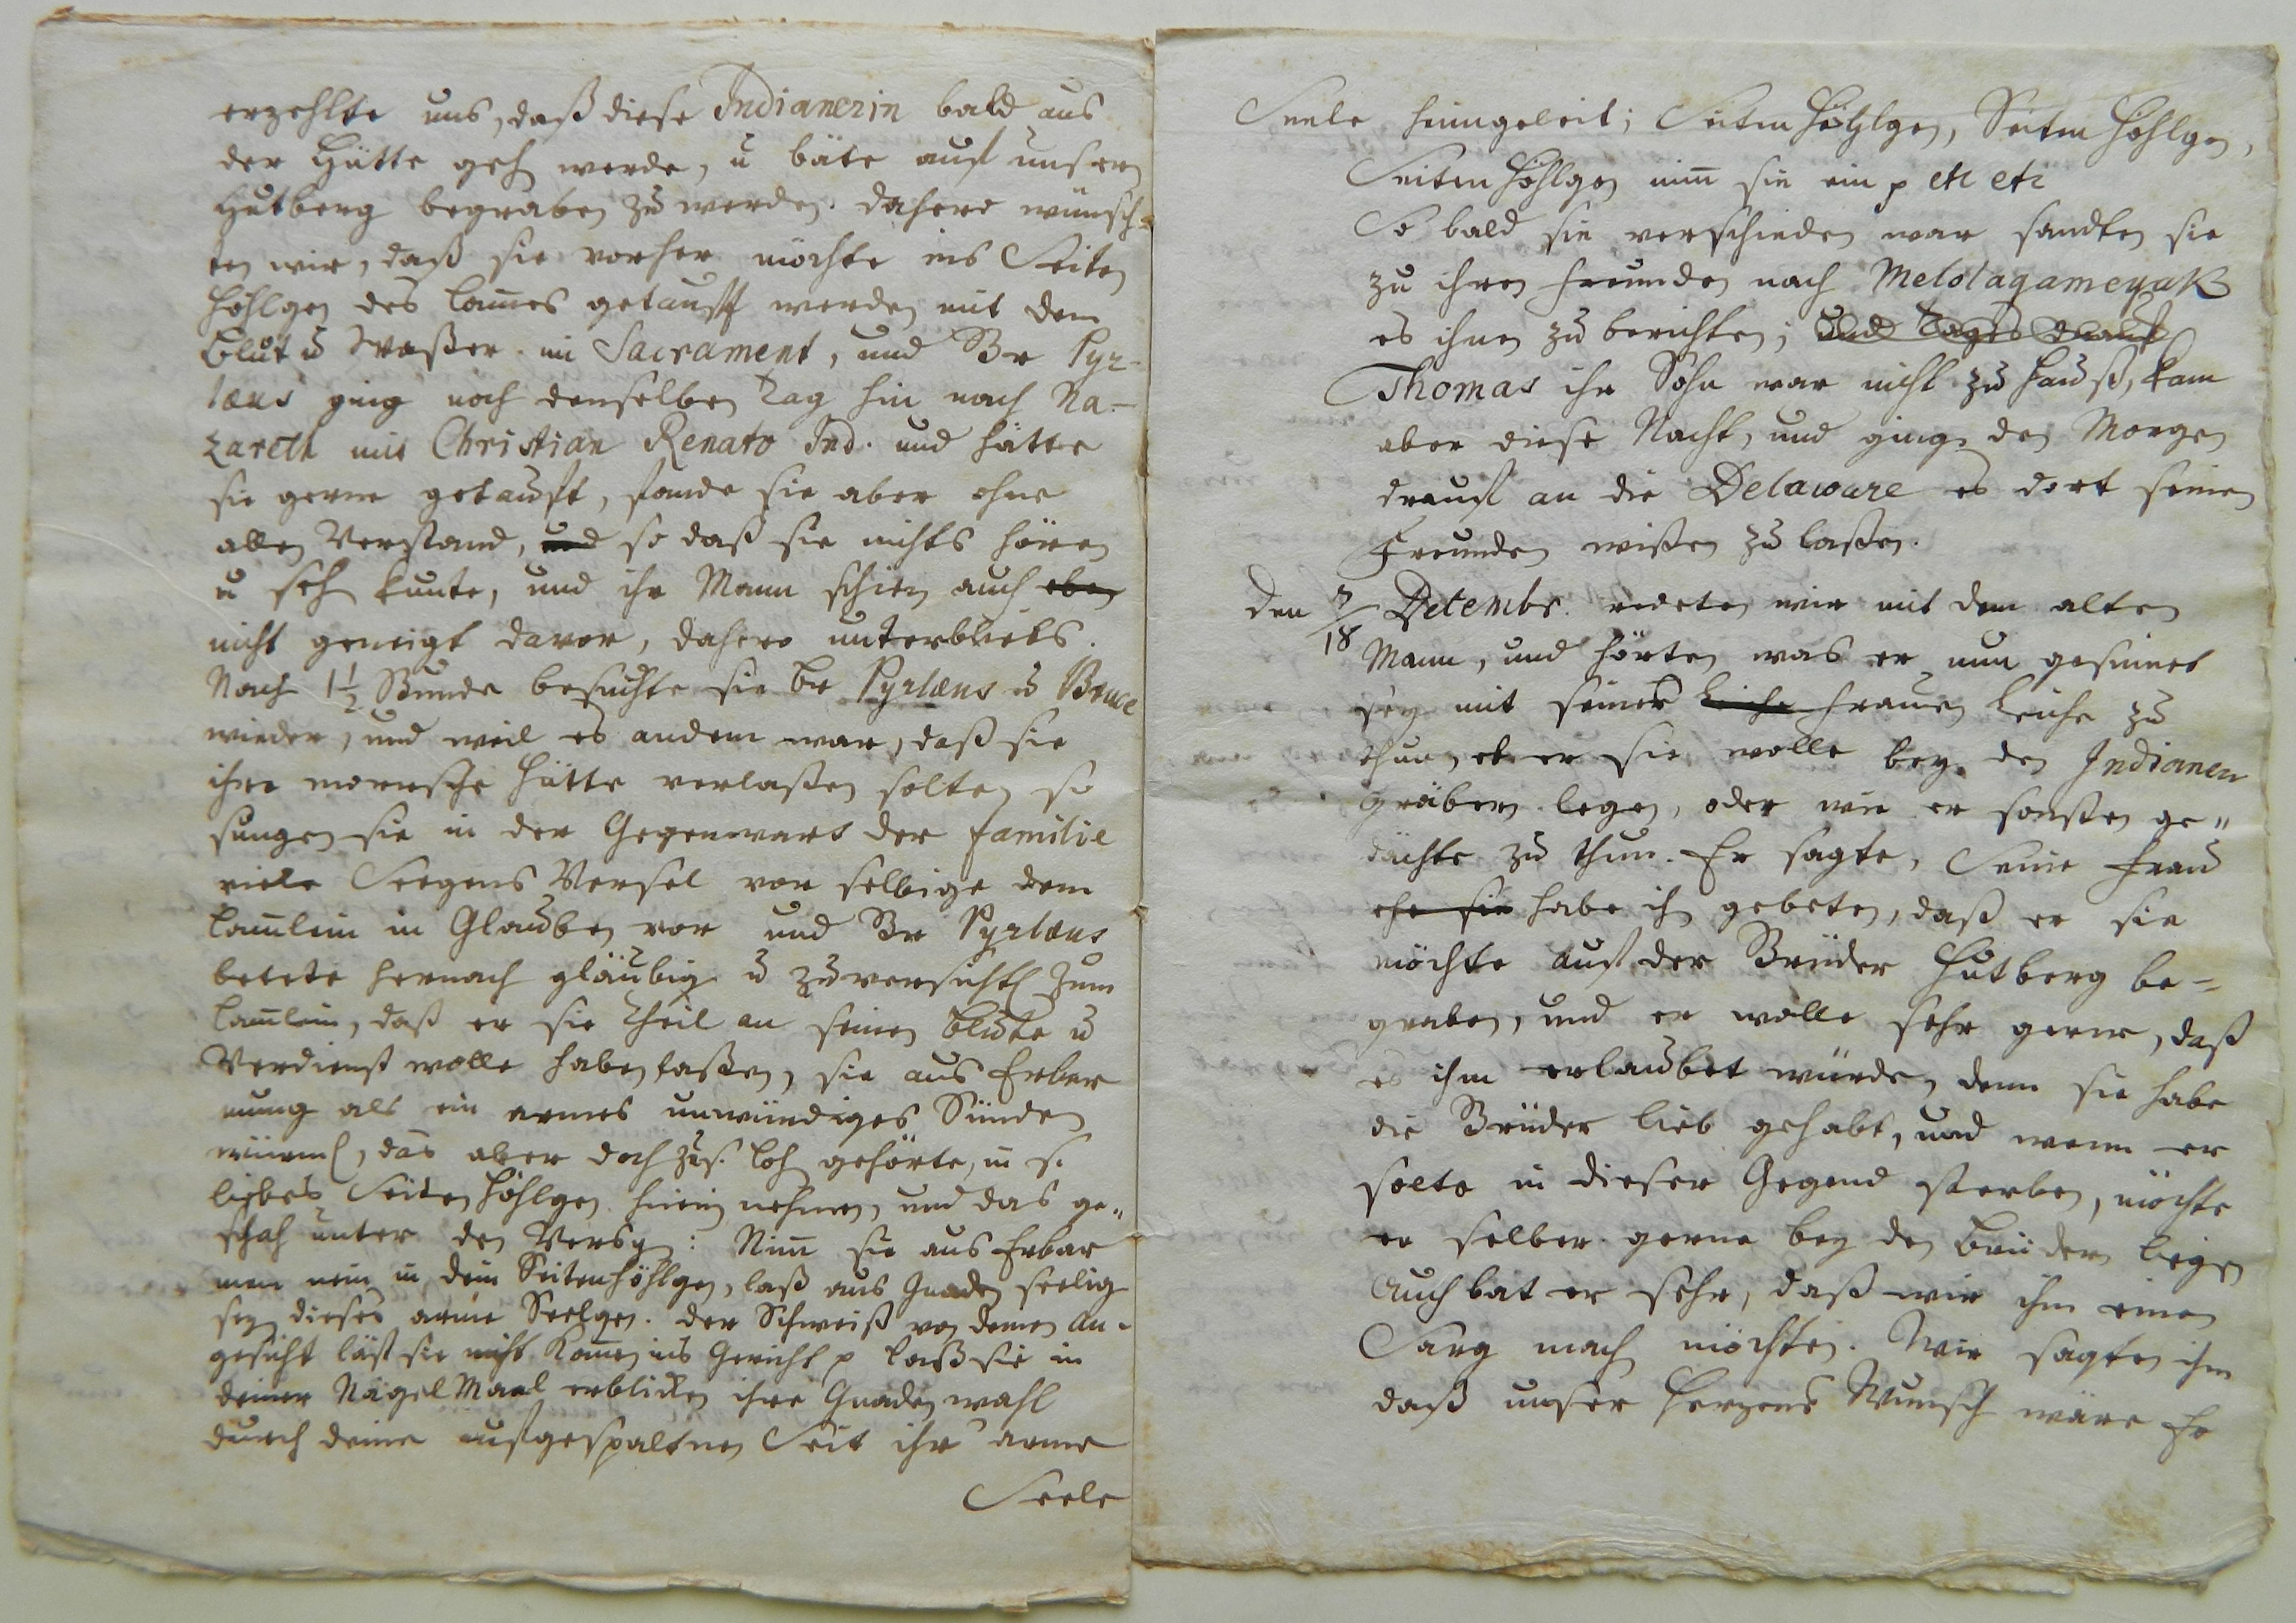 erzehlte uns, daß diese Indianerin bald aus
der Hütte geh werde, u bäte auf unsern
Hutberg begraben zu werden. dahero wünsch-
ten wir, daß sie vorher möchte ins Seiten
höhlgen des Lam̄es getaufft werden mit dem
Blut u Waßer im Sacrament, und Br Pyr-
læus ging noch denselben Tag hin nach Na-
zareth mit Christian Renato Ind. und hätte
sie gerne getaufft, fande sie aber ohne
allen Verstand, und so daß sie nichts hören
u seh kunte, und ihr Mann schien auch eben
nicht geneigt davor, dahero unterbliebs.
Nach 1½ Stunde besuchte sie Br Pyrlæus u Bruce
wieder, und weil es andem war, daß sie
ihre mornsche Hütte verlaßen solten so
sungen sie in der Gegenwart der familie
viele Seegens Versel vor selbige dem
Lam̄lein in Glauben vor und Br Pyrlæus
betete hernach gläubig u zuversichtl zum
Lam̄lein, daß er sie Theil an seinen Blute u
Verdienst wolle haben laßen, sie aus Erbar
mung als ein armes unwürdiges Sünden
würml, das aber doch zus. Loh gehörte, in s.
liebes Seiten höhlgen hinein nehmen, und das ge-
schah unter den Versgen: Nim̄ sie aus Erbar
men nein in dein Seitenhöhlgen, laß aus Gnaden seelig
seyn dieses arme Seelgen. der Schweiß von deinen An-
gesicht läst sie nicht kom̄en ins Gericht p laß sie in
deiner Nägel Maal erblicken ihre Gnaden wahl
durch deine aufgespaltnen Seit ihr arme
Seele
Seele heimgeleit; Seiten höhlgen, Seiten höhlgen,
Seiten höhlgen nim̄ sie ein p etc etc
So bald sie verschieden war sandten sie
zu ihren freunden nach Melolagameyak
es ihnen zu berichten; und Tages drauf
Thomas ihr Sohn war nicht zu Hauß, kam
aber diese Nacht, und ging den Morgen
drauf an die Delaware es dort seinen
Freunden wißen zu laßen.
den 7/18 Detembr. redeten wir mit dem alten
Mann, und hörten was er nun gesinnet
sey mit seiner Leiche Frauen Leiche zu
thun, ob er sie wolle bey den Indianern
gräbern legen, oder wie er sonsten ge-
dächte zu thun. Er sagte, Seine Frau
ehe sie habe ihn gebeten, daß er sie
möchte auf der Brüder Hutberg be-
graben, und er wolle sehr gerne, daß
es ihm erlaubet würde, denn sie habe
die Brüder lieb gehabt, und wenn er
solte in dieser Gegend sterben, möchte
er selber gerne bey den Brüdern liegen
Auch bat er sehr, daß wir ihm einen
Sarg mach möchten. Wir sagten ihm
daß unser Herzens Wunsch wäre Er